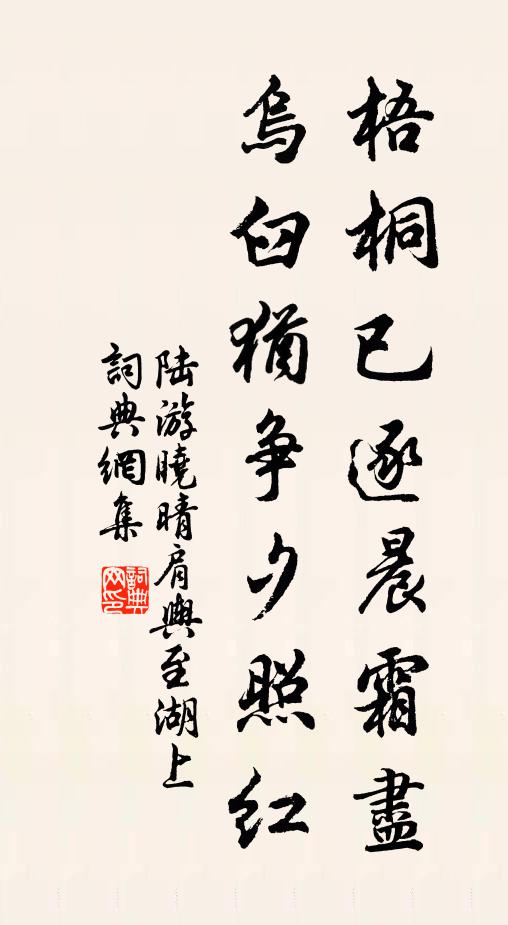 梧桐已逐晨霜盡
烏臼猶争夕照紅
陸游曉晴肩輿至湖上
詞典網集
詞典網印